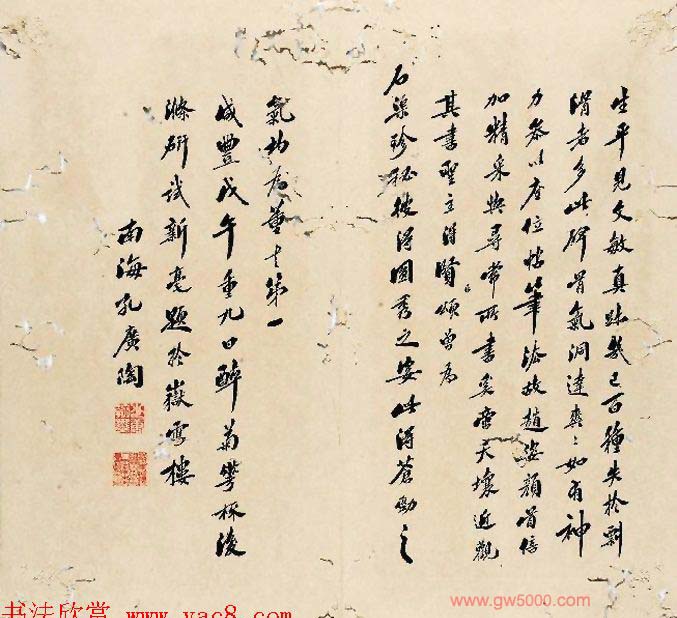 生平見文敏真跡幾已百種失於剽
滑者多此碑骨氣洞達奕〻如有神
力參以座位帖筆法故趙姿顏骨倍
加精采與尋常所書奚啻天壤近觀
其書聖主得賢頌曾為
石渠珍秘彼得圓秀之姿此得蒼勁之
氣均第一
咸豐戊午重九日醉菊後
滌研試新毫題於嶽雪樓
南海孔廣陶
书法欣赏 www.yac8.com
www.gw5000.com